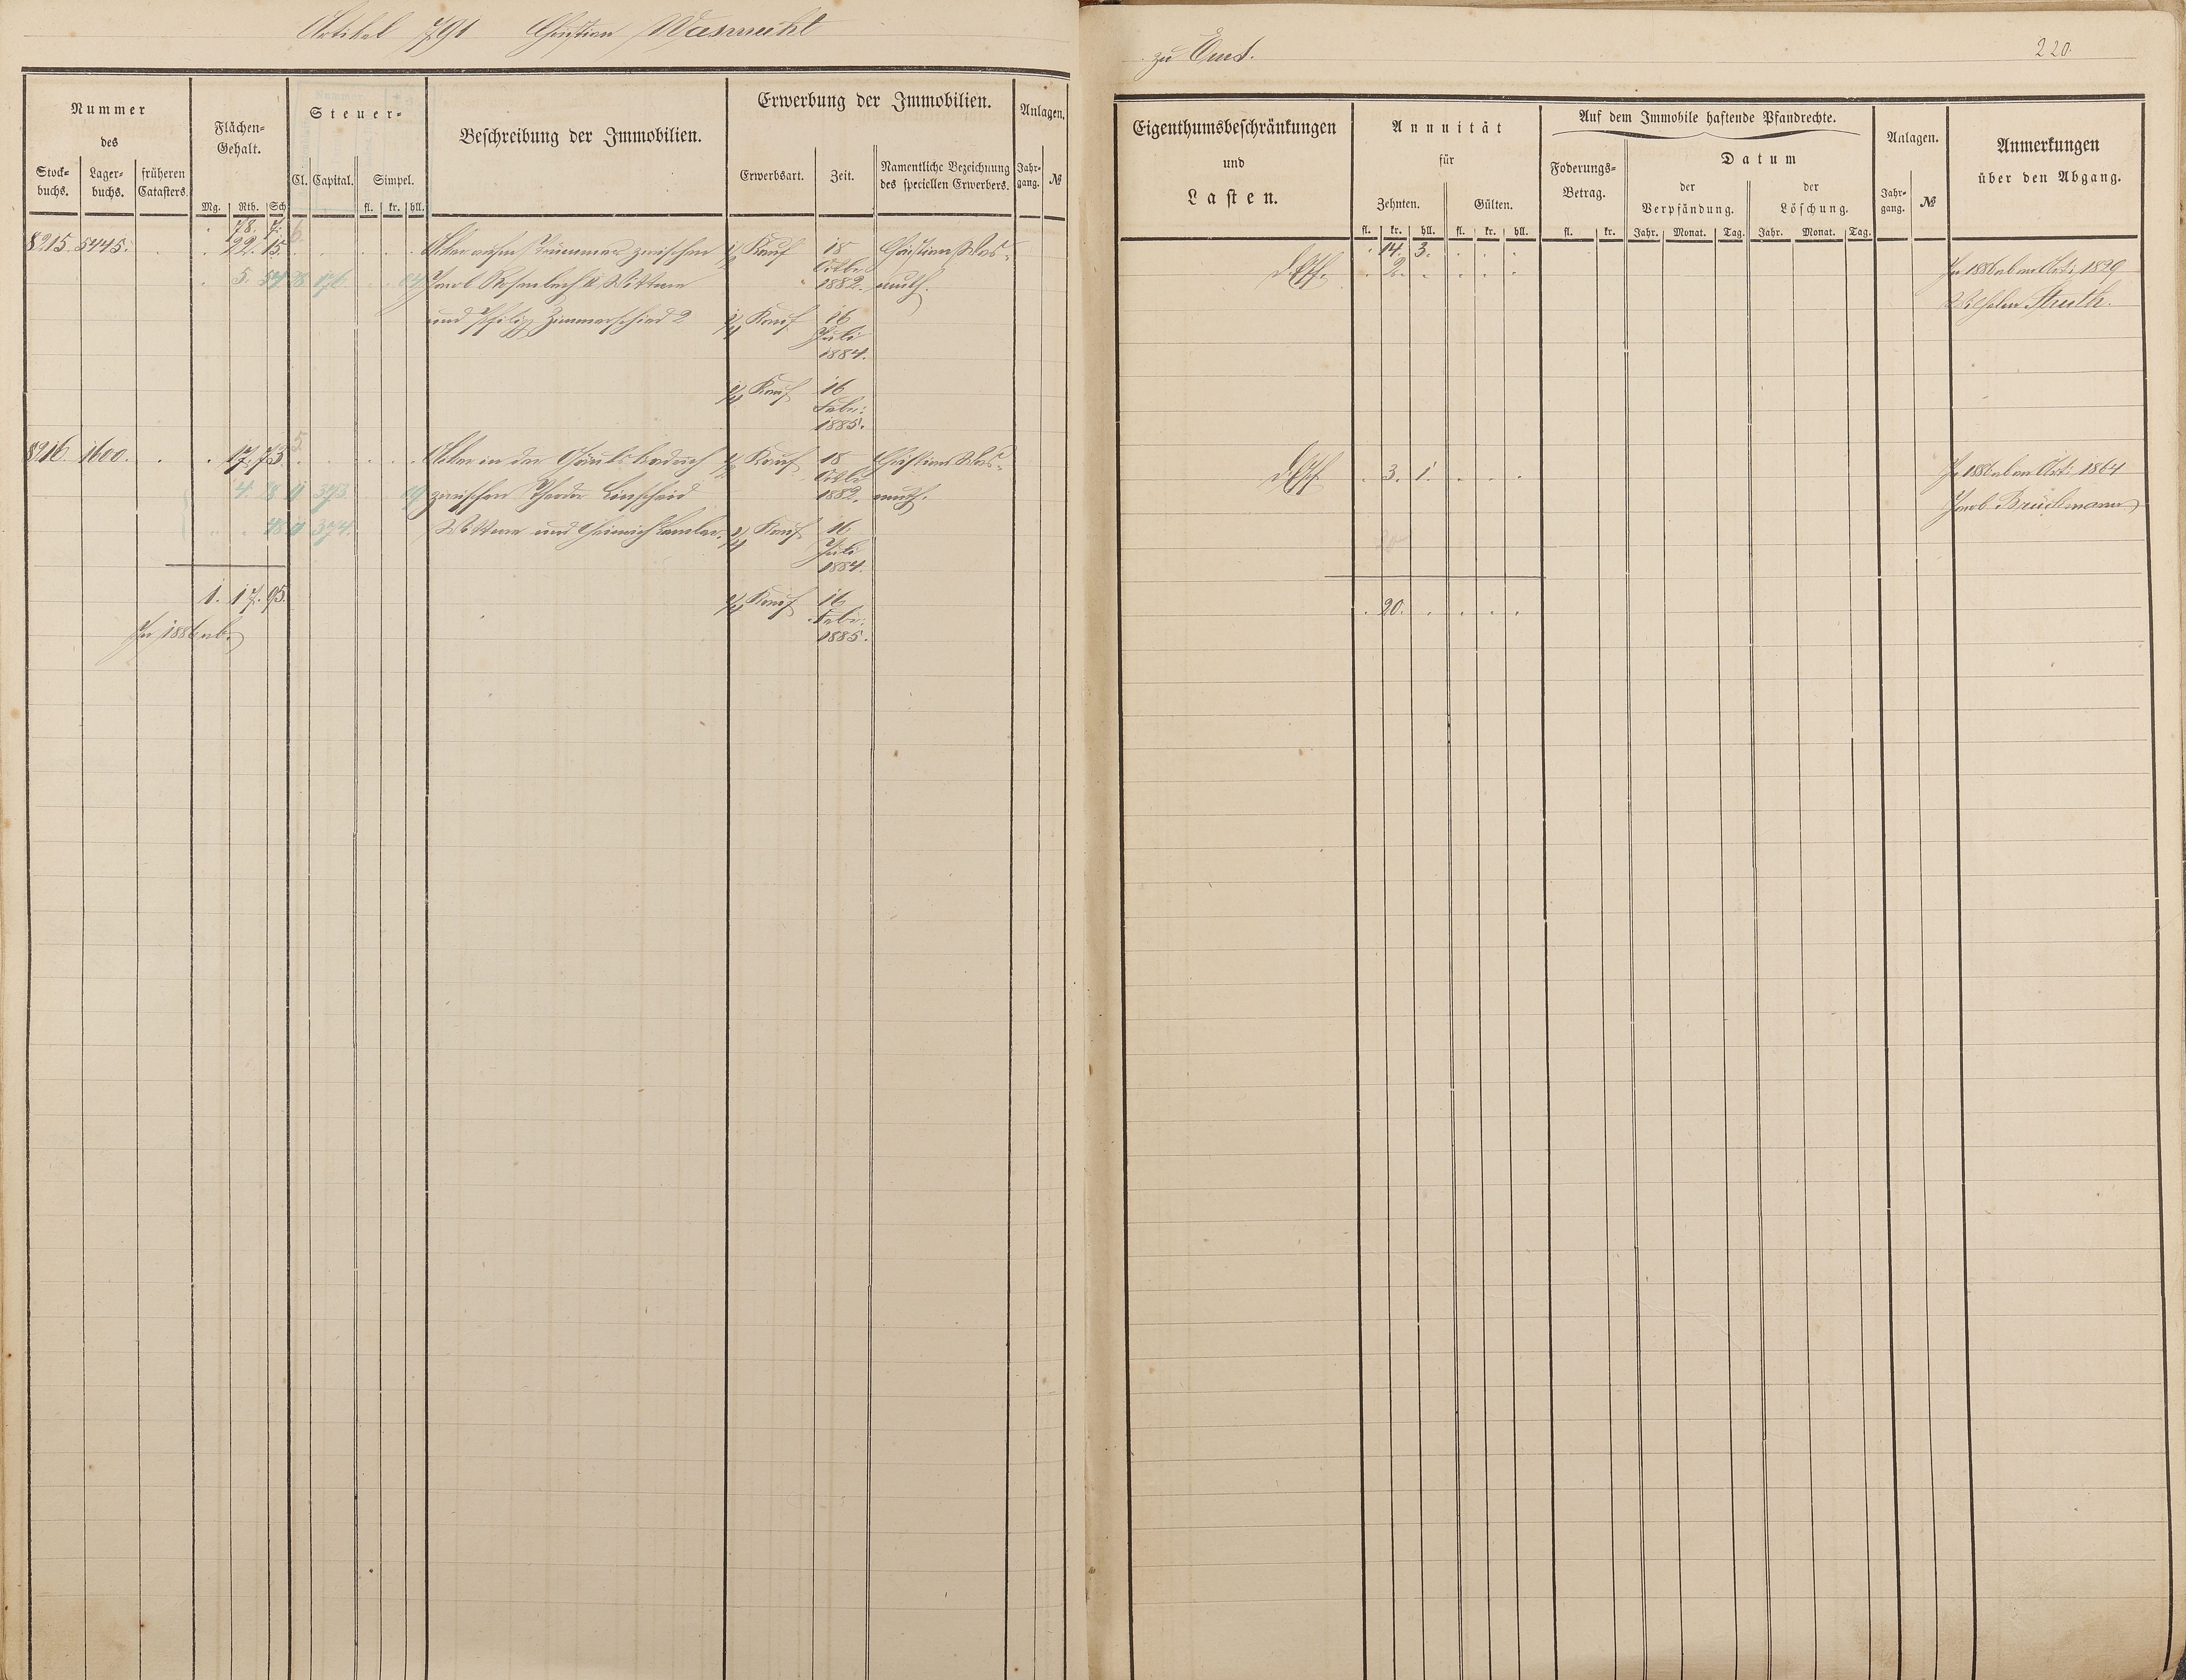 Artikel 791 Christian Wasmuth
zu Ems.
220.
Nummer
des
Stock-
buchs.
Lager-
buchs.
früheren
Catasters.
Flächen-
Gehalt.
Mg. Rth. Sch
Steuer-
Cl. Capital. Simpel.
fl. kr. hll.
Beschreibung der Immobilien.
Erwerbung der Immobilien.
Erwerbsart. Zeit.
Namentliche Bezeichnung
des speciellen Erwerbers.
Anlagen.
Jahr-
gang. №
78. 7.
8215. 5445. 22. 15. Acker zwischen ½ Kauf 18 Christian Was-
5. 54 Jacob Rosenbach Wittwe Octbr muth.
1882.
und Philipp Zimmerschied 2 ¼ Kauf 16
Juli
1884.
¼ Kauf 16
Febr:
1885.
8216. 1600. 17. 73. 5 Acker in der ½ Kauf 18 Christian Was-
4. 28 373. 09 zwischen Theodor Linscheid Octbr muth.
1882.
374. Wittwe und Heinrich ¼ Kauf 16
Juli
1884.
1. 17. 95. ¼ Kauf 16
Febr:
In 1886 ab. 1885.
Eigenthumsbeschränkungen
und
Lasten.
Annuität
für
Zehnten. Gülten.
fl. kr. hll. fl. kr. hll.
Auf dem Immobile haftende Pfandrechte.
Foderungs-
Betrag.
fl. kr.
Datum
der
Verpfändung.
der
Löschung.
Jahr. Monat. Tag. Jahr. Monat. Tag.
Anlagen.
Jahr-
gang. №
Anmerkungen
über den Abgang.
14. 3.
2. In 1886 ab an Art: 1829
Wilhelm Struth.
3. 1. In 1886 ab an Art: 1864
Jacob Brückmann
20.